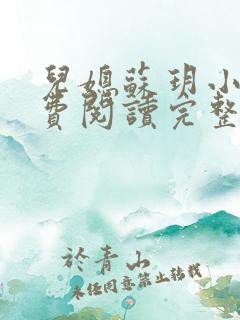 兒媳蘇玥小
費閱讀完整
於青山
未經同意禁止轉載